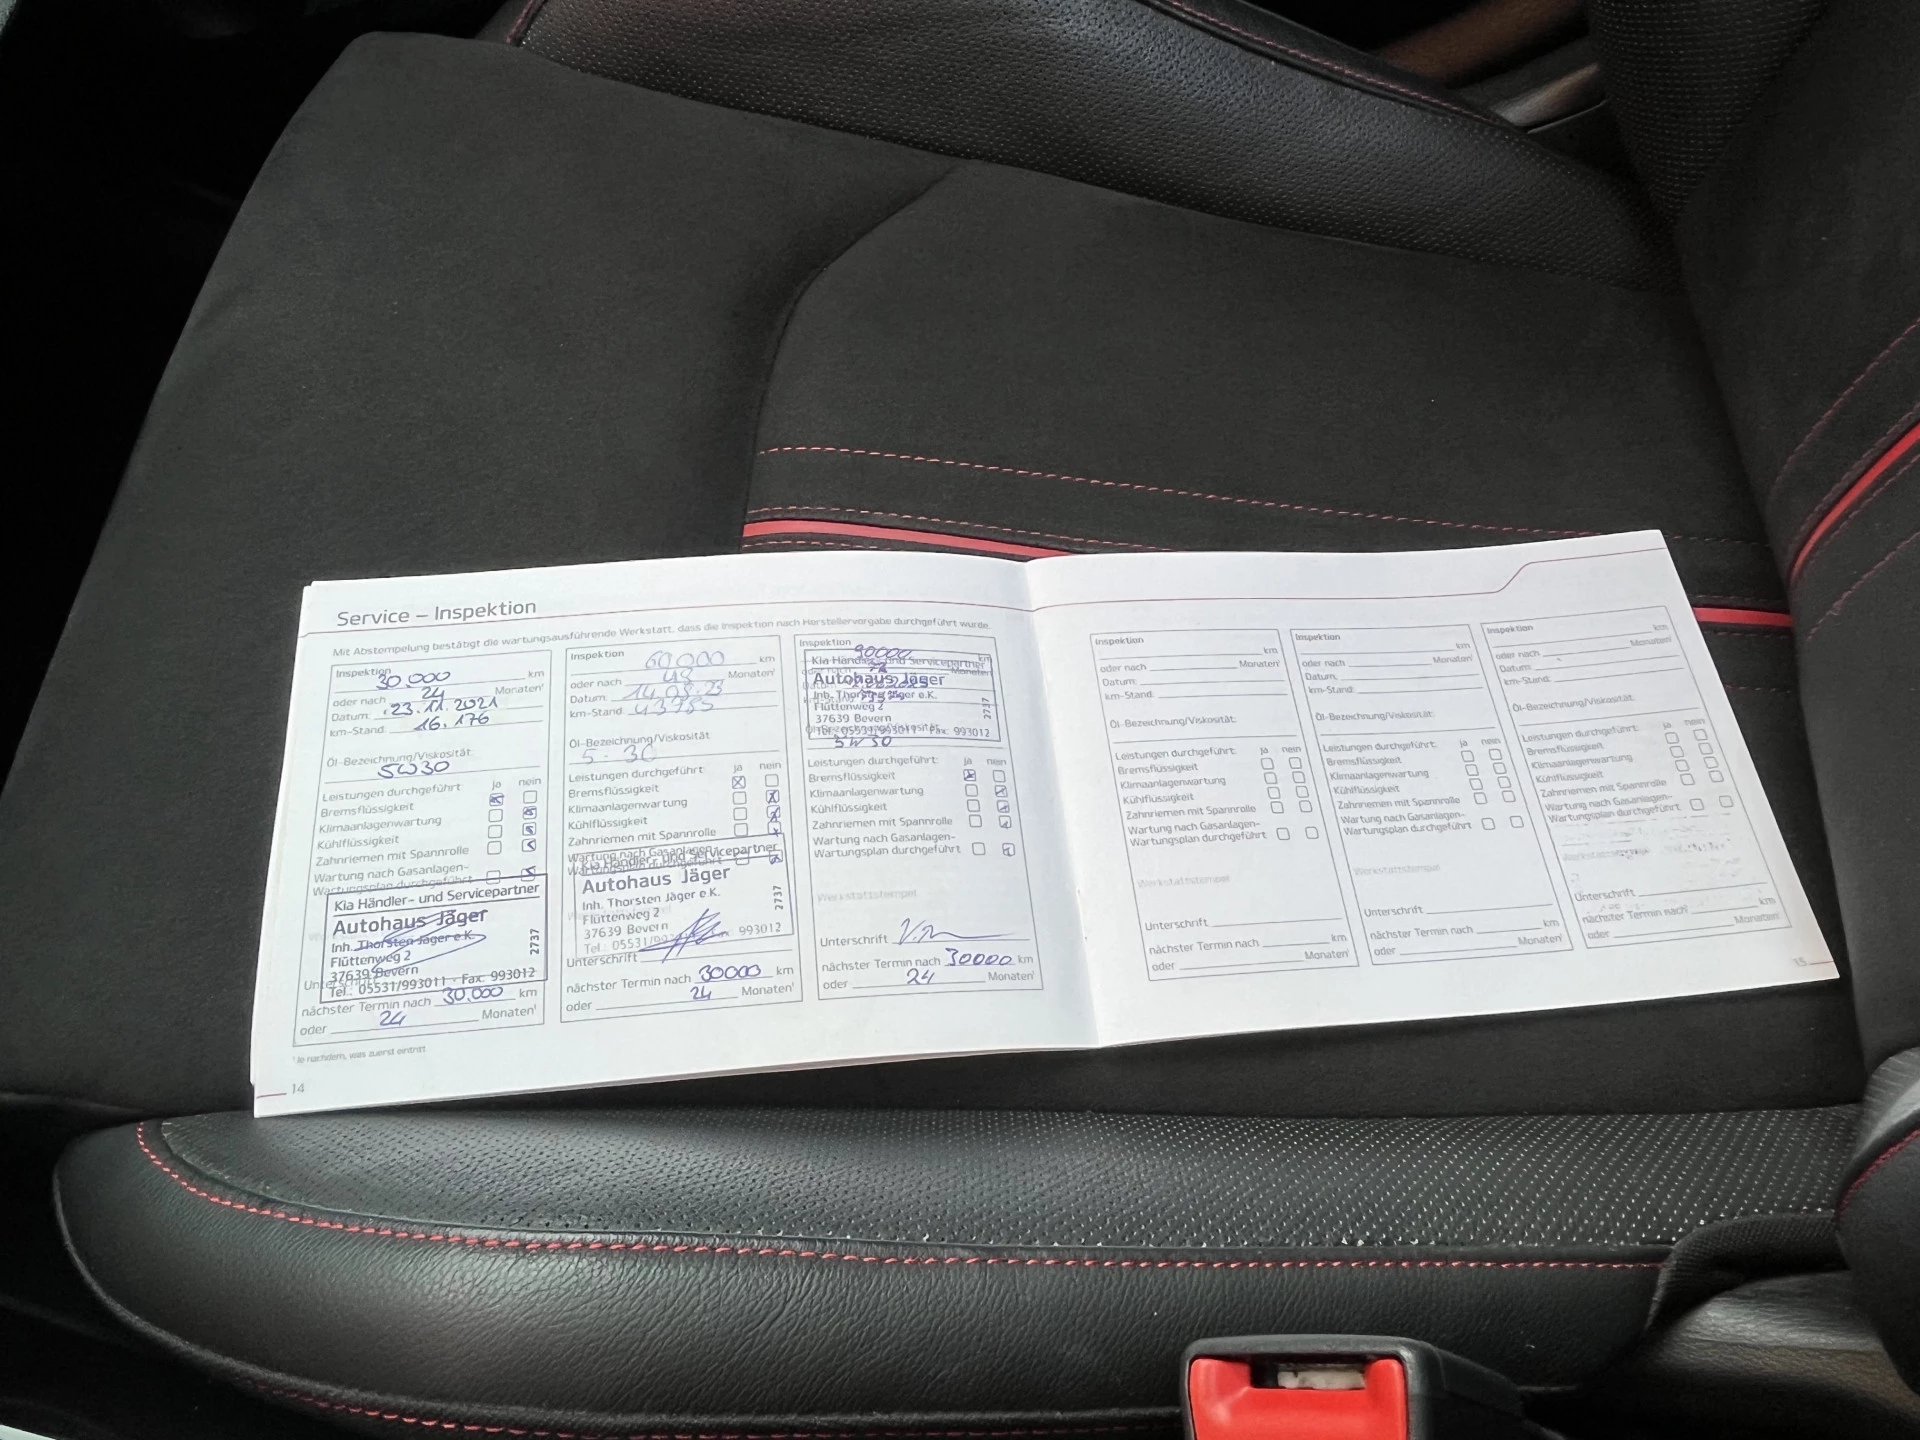 Service – Inspektion
Mit Abstempelung bestätigt die wartungsausführende Werkstatt, dass die Inspektion nach Herstellervorgabe durchgeführt wurde.
Inspektion 30.000 km
oder nach 24 Monaten¹
Datum: 23.11.2021
km-Stand: 16.176
Öl-Bezeichnung/Viskosität:
5W30
Leistungen durchgeführt ja nein
Bremsflüssigkeit
Klimaanlagenwartung
Kühlflüssigkeit
Zahnriemen mit Spannrolle
Wartung nach Gasanlagen-
Wartungsplan durchgeführt
Kia Händler- und Servicepartner
Autohaus Jäger
Inh. Thorsten Jäger e.K.
Flüttenweg 2
37639 Bevern
Tel.: 05531/993011 · Fax: 993012
2737
nächster Termin nach 30.000 km
oder 24 Monaten¹
Inspektion 60000 km
oder nach 48 Monaten¹
Datum: 14.08.23
km-Stand: 43985
Öl-Bezeichnung/Viskosität
5-30
Leistungen durchgeführt: ja nein
Bremsflüssigkeit
Klimaanlagenwartung
Kühlflüssigkeit
Zahnriemen mit Spannrolle
Wartung nach Gasanlagen-
Wartungsplan durchgeführt
Kia Händler- und Servicepartner
Autohaus Jäger
Inh. Thorsten Jäger e.K.
Flüttenweg 2
37639 Bevern
Tel.: 05531/99 993012
2737
Unterschrift
nächster Termin nach 30000 km
oder 24 Monaten¹
Inspektion 90000 km
Kia Händler- und Servicepartner
Autohaus Jäger
Inh. Thorsten Jäger e.K.
Flüttenweg 2
37639 Bevern
Tel.: 05531/993011 · Fax: 993012
2737
5W30
Leistungen durchgeführt: ja nein
Bremsflüssigkeit
Klimaanlagenwartung
Kühlflüssigkeit
Zahnriemen mit Spannrolle
Wartung nach Gasanlagen-
Wartungsplan durchgeführt
Werkstattstempel
Unterschrift
nächster Termin nach 30000 km
oder 24 Monaten¹
¹Je nachdem, was zuerst eintritt
14
Inspektion
km
oder nach Monaten¹
Datum:
km-Stand:
Öl-Bezeichnung/Viskosität:
Leistungen durchgeführt: ja nein
Bremsflüssigkeit
Klimaanlagenwartung
Kühlflüssigkeit
Zahnriemen mit Spannrolle
Wartung nach Gasanlagen-
Wartungsplan durchgeführt
Werkstattstempel
Unterschrift
nächster Termin nach km
oder Monaten¹
Inspektion
km
oder nach Monaten¹
Datum:
km-Stand:
Öl-Bezeichnung/Viskosität:
Leistungen durchgeführt: ja nein
Bremsflüssigkeit
Klimaanlagenwartung
Kühlflüssigkeit
Zahnriemen mit Spannrolle
Wartung nach Gasanlagen-
Wartungsplan durchgeführt
Werkstattstempel
Unterschrift
nächster Termin nach km
oder Monaten¹
Inspektion
km
oder nach Monaten¹
Datum:
km-Stand:
Öl-Bezeichnung/Viskosität:
Leistungen durchgeführt: ja nein
Bremsflüssigkeit
Klimaanlagenwartung
Kühlflüssigkeit
Zahnriemen mit Spannrolle
Wartung nach Gasanlagen-
Wartungsplan durchgeführt
Werkstattstempel
Unterschrift
nächster Termin nach km
oder Monaten¹
15